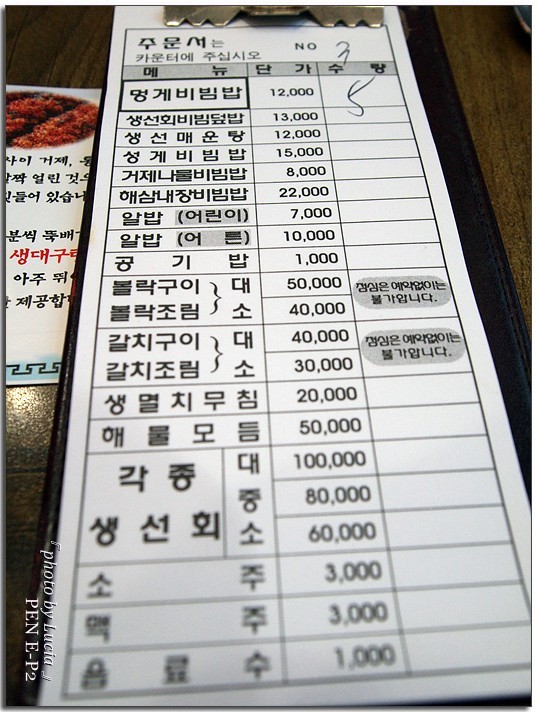 주문서는
카운터에 주십시오 NO 3
메 뉴 단 가 수 량
멍게비빔밥 12,000 5
생선회비빔덮밥 13,000
생선매운탕 12,000
성게비빔밥 15,000
거제나물비빔밥 8,000
해삼내장비빔밥 22,000
알밥 (어린이) 7,000
알밥 (어 른) 10,000
공 기 밥 1,000
볼락구이 대 50,000 점심은 예약없이는
볼락조림 소 40,000 불가입니다.
갈치구이 대 40,000 점심은 예약없이는
갈치조림 소 30,000 불가입니다.
생멸치무침 20,000
해물모듬 50,000
각종 대 100,000
중 80,000
생선회 소 60,000
소 주 3,000
맥 주 3,000
음 료 수 1,000
사이 거제, 통
살짝 얼린 것으
만들어 있습니
분씩 뚝배
생대구
아주 뛰어
제공합
『photo by Lucia』
PEN E-P2